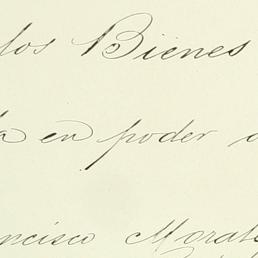 los Bienes
en poder
ncisco Morale